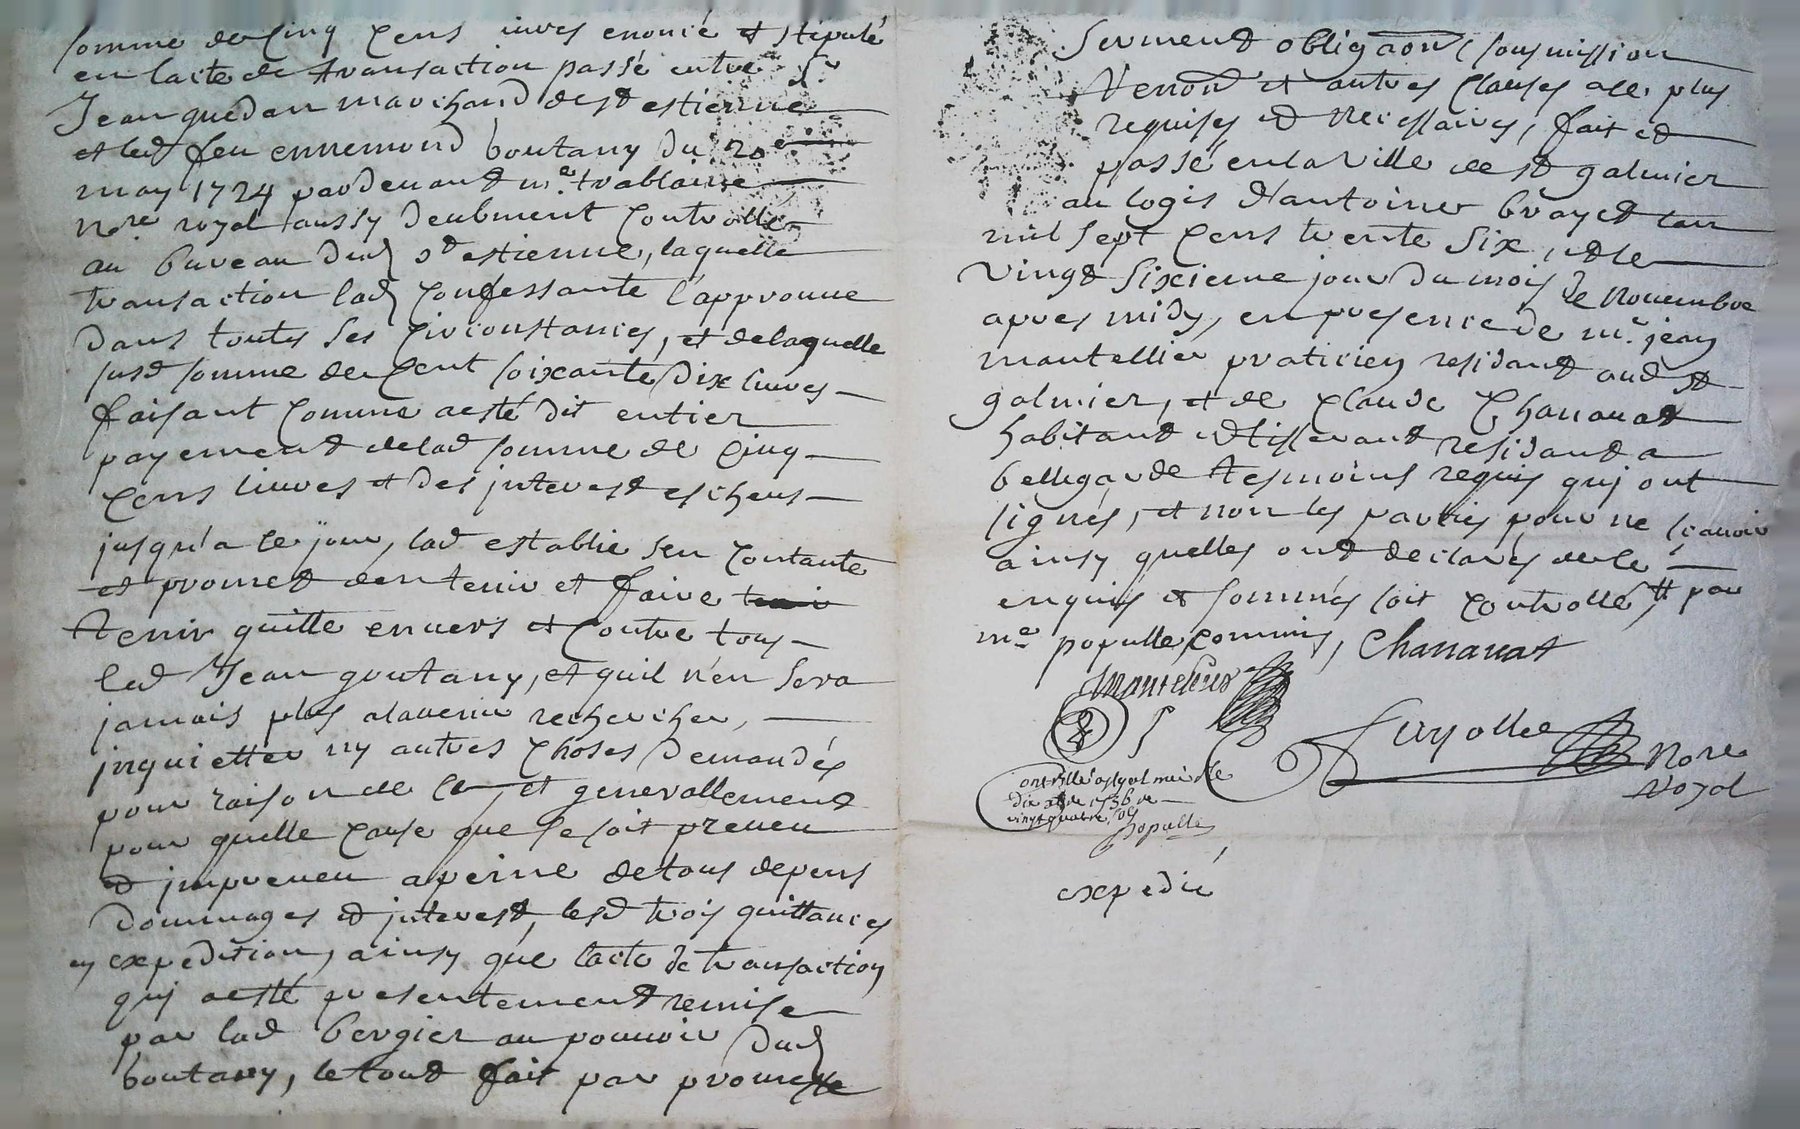 somme de Cinq Cens livres enoncé et stipulé
en lacte de transaction passé entre Sr
Jean quedan marchand de st estienne
et led feu ennemond boutany du 20e
may 1724 pardevant me trablaine
nore royal aussy deubment Controllé
au bureau dud st estienne, laquelle
transaction lad Confessante l'approuve
dans toutes ses Circonstances, et delaquelle
susd somme de Cent soixante Dix livres
faisant Comme aesté dit entier
payement delad somme de Cinq
Cens livres et des interest escheus
jusqu'a ce jour, lad establie sen Contante
et promet den tenir et faire
tenir quitte envers et Contre tous
led Jean goutany, et quil n'en sera
jamais plus alavenir rechercher,
inquietter ny autres Choses Demandés
pour raison de ce, et generallement
pour quelle Cause que se soit preveu
et impreveu apeine detous depens
Dommages et interest, lesd trois quittances
en expedition, ainsy que lacte de transaction
qui aesté presentement remise
par lad bergier au pouvoir dud
boutany, letout fait par promesse
serment obligaon soumission
Renon et autres Clauses ace plus
requises et Necessaires, fait et
passé enla Ville de st galmier
au logis d'antoine brayet lan
mil sept Cens trente Six, et le
vingt sixieme jour Du mois de Novembre
apres midy, en presence de mr jean
mantellier praticien residant aud st
galmier, et de Claude Chanavat
habitant et tisserant residant a
bellegarde tesmoins requis qui ont
signés, et non les parties pour ne sçavoir
ainsy quelles ont declarés de ce
enquis et sommés soit Controllé, par
me populle, Commis, Chanavat
Mantelier
nore
royal
Controllé a st galmier le
dix xbre 1736 re
vingt quatre sols
Populle
expedié